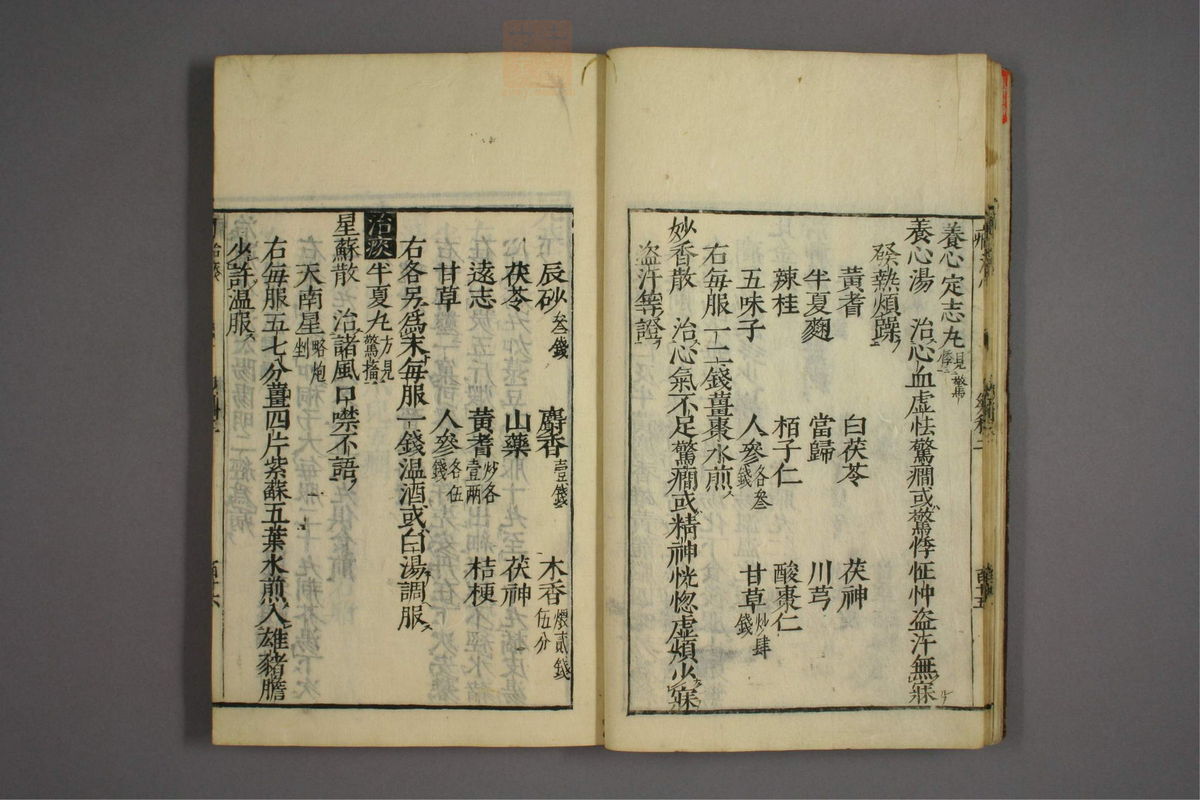 養心定志丸見驚悸
養心湯 治心血虛怯驚癇或驚悸怔忡盜汗無寐
發熱煩躁
黃耆 白茯苓 茯神
半夏麴 當歸 川芎
辣桂 栢子仁 酸棗仁
五味子 人參各叁錢 甘草炒肆錢
右每服一二錢薑棗水煎
妙香散 治心氣不足驚癇或精神恍惚虛煩少寐
盜汗等證
辰砂叁錢 麝香壹錢 木香煨貳錢伍分
茯苓 山藥 茯神
遠志 黃耆炒各壹兩 桔梗
甘草 人參各伍錢
右各另爲末每服一錢温酒或白湯調服
治痰半夏丸方見驚搐
星蘇散 治諸風口噤不語
天南星略炮剉
右每服五七分薑四片紫蘇五葉水煎入雄豬膽
少許温服